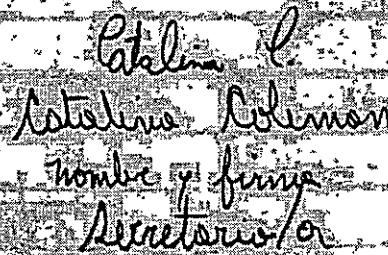 Catalina C.
Catalina Coliman
nombre y firma
Secretario/a